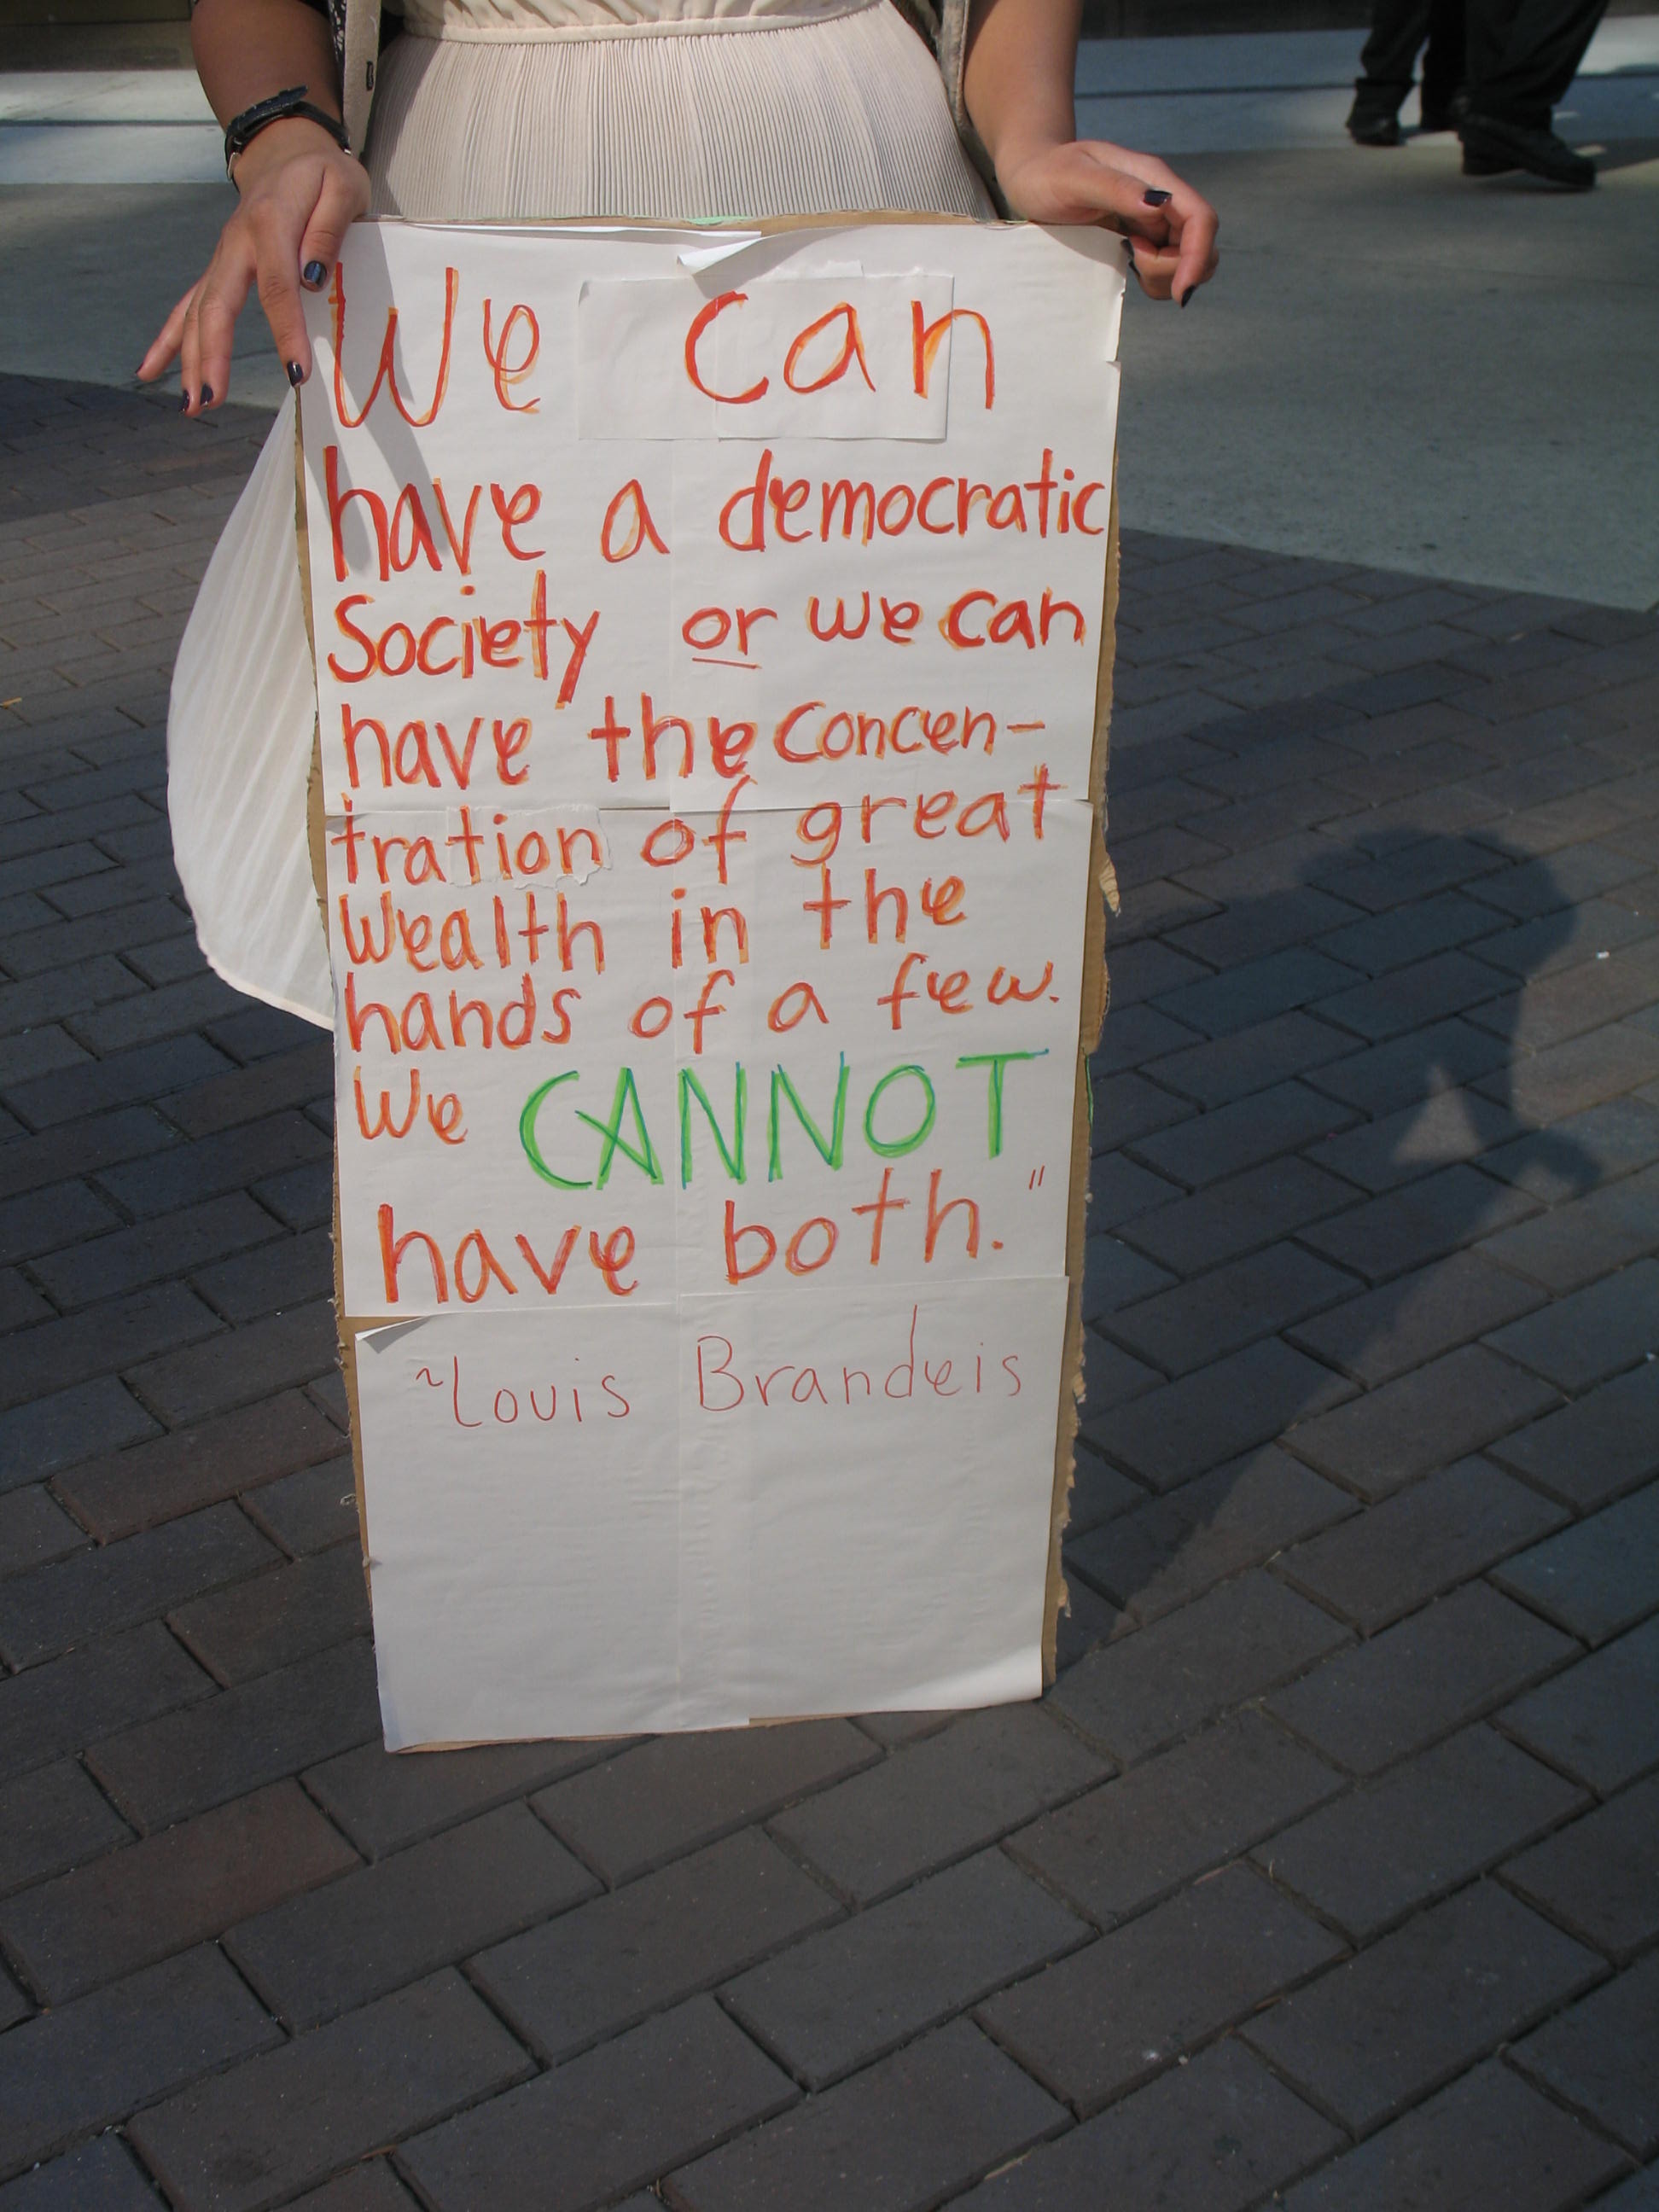 We can
have a democratic
Society or we can
have the concen-
tration of great
wealth in the
hands of a few.
We CANNOT
have both."
~Louis Brandeis